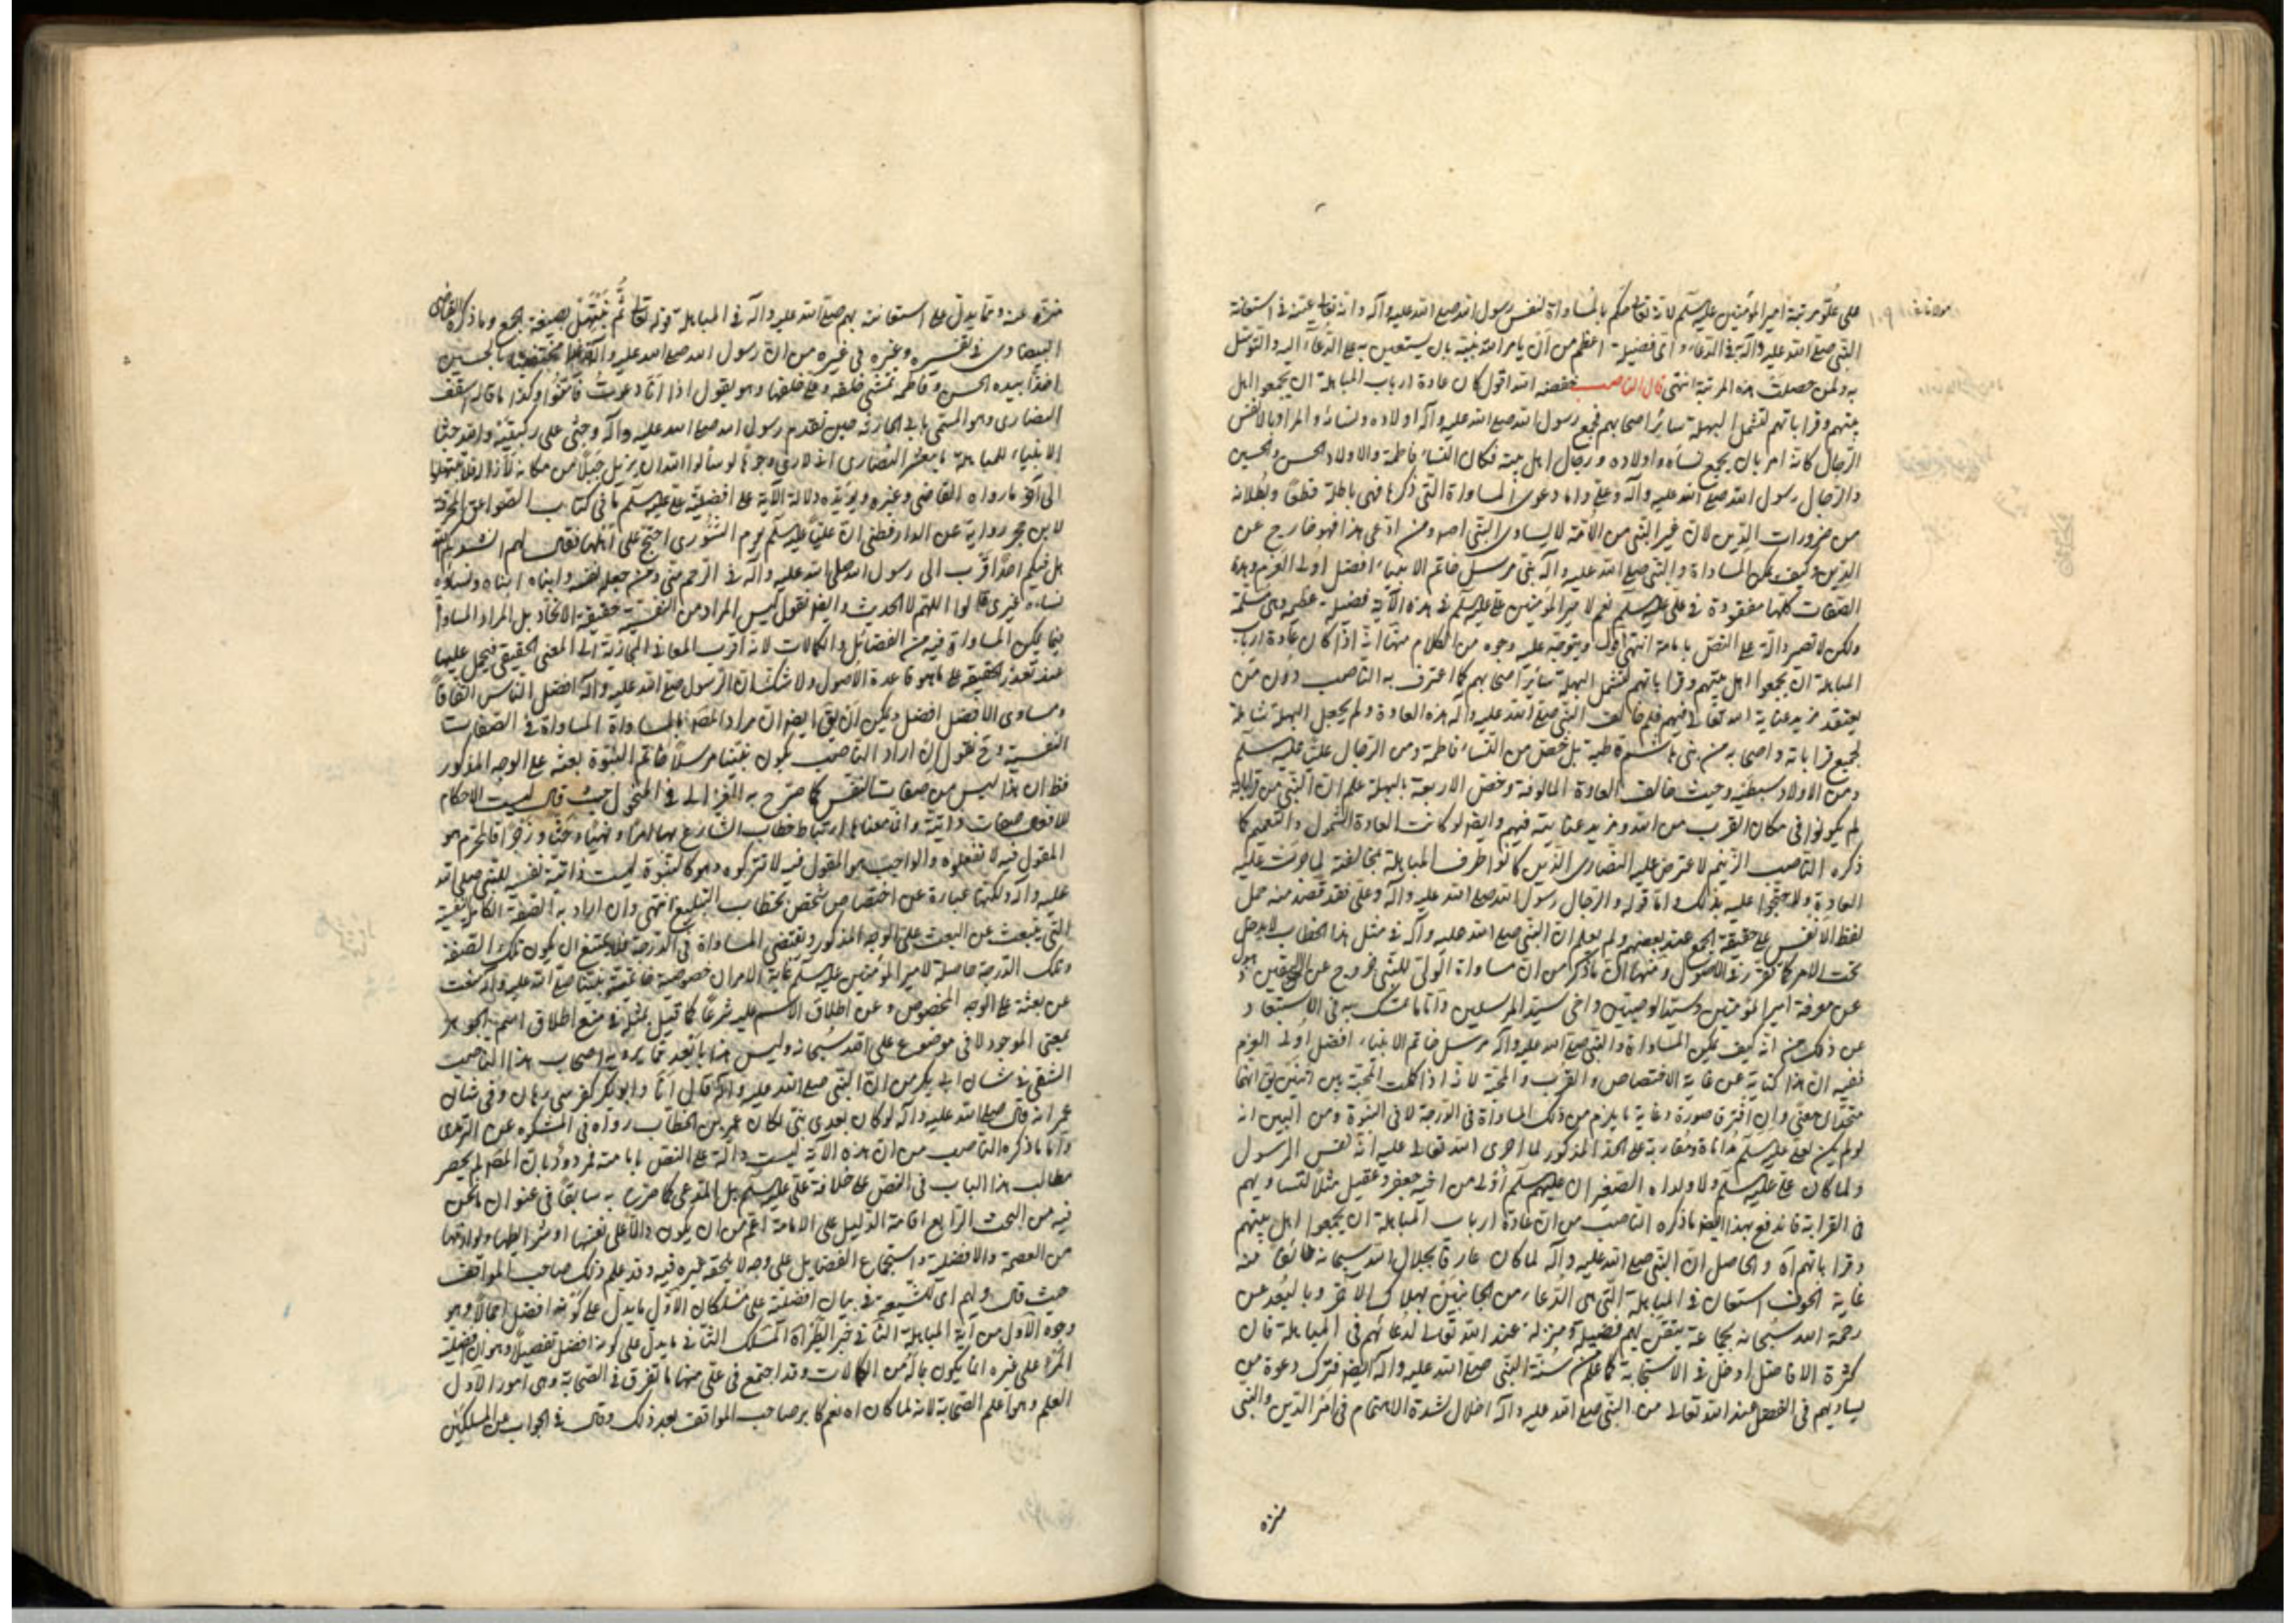 على علو مرتبة امير المؤمنين عليه السلم لانه تعالى حكم بالمساواة لنفس رسول الله صلى الله عليه وآله وانه تعالى عينه في استعانة
النبي صلى الله عليه وآله في الدعاء واى فضيلة اعظم من أن يامر الله نبيه بان يستعين به على الدعاء اليه والتوسل
به ولمن حصلت هذه المرتبة انتهى قال الناصب خفضه الله اقول كان عادة ارباب المباهلة ان يجمعوا اهل
بيتهم وقراباتهم لتشمل البهلة سائر اصحابهم فجمع رسول الله صلى الله عليه وآله اولاده ونسائه والمراد بالانفس
الرجال كانه امر بان يجمع نساءه واولاده ورجال اهل بيته فكان النساء فاطمة والاولاد الحسن والحسين
والرجال رسول الله صلى الله عليه وآله وعلي واما دعوى المساواة التي ذكرها فهي باطلة قطعا وبطلانه
من ضرورات الدين لان غير النبي من الامة لا يساوى النبي اصلا ومن ادعى هذا فهو خارج عن
الدين وكيف يمكن المساواة والنبي صلى الله عليه وآله نبي مرسل خاتم الانبياء افضل اولى العزم وهذه
الصفات كلها مفقودة في علي عليه السلم نعم لامير المؤمنين علي عليه السلم في هذه الآية فضيلة عظيمة وهي مسلمة
ولكن لا تصير دالة على النص بامامته انتهى اقول ويتوجه عليه وجوه من الكلام منها انه اذا كان عادة ارباب
المباهلة ان يجمعوا اهل بيتهم وقراباتهم لتشمل البهلة سائر اصحابهم كما اعترف به الناصب دون من
يعتقد مزيد عناية الله تعالى فيهم فلم خالف النبي صلى الله عليه وآله هذه العادة ولم يجعل البهلة شاملة
لجميع قراباته واصحابه من بني هاشم بل خص من النساء فاطمة ومن الرجال علي عليه السلم
ومن الاولاد سبطيه وحيث خالف العادة المألوفة وخص الاربعة بالبهلة علم ان النبي من قراباته
لم يكونوا في مكان القرب من الله ومزيد عنايته فيهم وايضا لو كانت العادة الشمول والتعميم كما
ذكره الناصب الزنيم لاعترض عليه النصارى الذين كانوا طرف المباهلة بمخالفته لما جرت عليه
العادة ولاحتجوا عليه بذلك واما قوله والرجال رسول الله صلى الله عليه وآله وعلي فقد قصد منه حمل
لفظ الانفس على حقيقة الجمع عند بعضهم ولم يعلم ان النبي صلى الله عليه وآله في مثل هذا الخطاب لا يدخل
تحت الامر كما تقرر في الاصول ومنها ان ما ذكره من ان مساواة الولي للنبي خروج عن الدين
عن معرفة امير المؤمنين وسيد الوصيين واخي سيد المرسلين واما ما تمسك به في الاستبعاد
عن ذلك من انه كيف يمكن المساواة والنبي صلى الله عليه وآله مرسل خاتم الانبياء افضل اولى العزم
ففيه ان هذا كناية عن غاية الاختصاص والقرب والمحبة لانه اذا كملت المحبة بين اثنين يقال انهما
متحدان معنى وان افترقا صورة وغاية ما يلزم من ذلك المساواة في الدرجة لا في النبوة ومن البين انه
لو لم يكن لعلي عليه السلم مداناة ومقاربة على الحد المذكور لما اجرى الله تعالى عليه انه نفس الرسول
ولما كان علي عليه السلم ولا ولداه الصغيران عليهم السلم أولى من اخيه جعفر وعقيل مثلا لتساويهم
في القرابة فاندفع بهذا ايضا ما ذكره الناصب من ان عادة ارباب المباهلة ان يجمعوا اهل بيتهم
وقراباتهم آه والحاصل ان النبي صلى الله عليه وآله لما كان عارفا بجلال الله سبحانه خائفا منه
غاية الخوف استعان في المباهلة التي هي الدعاء من الجانبين بهلاك الآخر وبالبعد عن
رحمة الله سبحانه بجماعة يتقن لهم فضيلة ومنزلة عند الله تعالى لدعائهم في المباهلة فان
كثرة الافاضل ادخل في الاستجابة كما علم من سنة النبي صلى الله عليه وآله ايضا فترك دعوة من
يساويهم في الفضل عند الله تعالى من النبي صلى الله عليه وآله اخلال لشدة الاهتمام في امر الدين والنبي
منزه
منزه عنه ومما يدل على استعانته بهم صلى الله عليه وآله في المباهلة قوله تعالى ثُمَّ نَبْتَهِلْ بصيغة الجمع وما ذكره القاضى
البيضاوى في تفسيره وغيره في غيره من ان رسول الله صلى الله عليه وآله محتضنا بالحسين
اخذا بيده الحسن وفاطمة تمشى خلفه وعلي خلفها وهو يقول اذا أنا دعوت فأمنوا وكذا ما قاله اسقف
النصارى وهو المسمى بابي الحارثة حين تقدم رسول الله صلى الله عليه وآله وجثى على ركبتيه والله جثا
الانبياء للمباهلة يا معشر النصارى انى لارى وجوها لو سألوا الله ان يزيل جبلا من مكانه لازاله فلا تبتهلوا
الى آخر ما رواه القاضى وغيره ويؤيده دلالة الآية على افضلية علي عليه السلم ما في كتاب الصواعق المحرقة
لابن حجر رواية عن الدارقطنى ان عليا عليه السلم يوم الشورى احتج على اهلها فقال لهم انشدكم بالله
هل فيكم احدا قرب الى رسول الله صلى الله عليه وآله في الرحم مني ومن جعله نفسه وابناه ابناه ونساؤه
نساءه غيرى قالوا اللهم لا الحديث وايضا نقول ليس المراد من النفسية حقيقة الاتحاد بل المراد المساواة
فيما يمكن المساواة فيه من الفضائل والكمالات لانه اقرب المعانى المجازية الى المعنى الحقيقى فيحمل عليها
عند تعذر الحقيقة على ما هو قاعدة الاصول ولا شك ان الرسول صلى الله عليه وآله افضل الناس اتفاقا
ومساوى الافضل افضل ويمكن ان يق ايضا ان مراد المصنف بالمساواة المساواة في الصفات
النفسية وح نقول ان اراد الناصب بكون نبينا مرسلا خاتم النبوة بعثه على الوجه المذكور
فظ ان هذا ليس من صفات النفس كما صرح به الغزالى في المنخول حيث قال ليست الاحكام
للافعال صفات ذاتية وانما معناها ارتباط خطاب الشارع بها امرا ونهيا وحثا وزجرا فالمحرم هو
المقول فيه لا تفعلوه والواجب هو المقول فيه لا تتركوه وهو كالنبوة ليست ذاتية نفسه للنبي صلى الله
عليه وآله ولكنها عبارة عن اختصاص شخص بخطاب التبليغ انتهى وان اراد به الصفة الكاملة النفسية
التي ينبعث عن البعث على الوجه المذكور ويقتضى المساواة في الدرجة فلا يمتنع ان يكون تلك الصفة
وتلك الدرجة حاصلة لامير المؤمنين عليه السلم غاية الامر ان خصوصية خاتمية نبينا صلى الله عليه وآله منعت
عن بعثه على الوجه المخصوص وعن اطلاق الاسم عليه شرعا كما قيل بمثله في منع اطلاق اسم الجوهر
بمعنى الموجود لا في موضوع على الله سبحانه وليس هذا بأبعد مما يرويه اصحاب هذا الناصب
الشقى في شان ابى بكر من ان النبي صلى الله عليه وآله قال انا وابو بكر كفرسى رهان وفي شان
عمر انه قال صلى الله عليه وآله لو كان بعدى نبى لكان عمر بن الخطاب رواه في المشكوه عن الترمذى
واما ما ذكره الناصب من ان هذه الآية ليست دالة على النص بامامته فمردود بان المصنف لم يحصر
مطالب هذا الباب في النص على خلافة علي عليه السلم بل المدعى كما صرح به سابقا في عنوان ما نحن
فيه من البحث الرابع اقامة الدليل على الامامة اعم من ان يكون دالا على نفسها او شرايطها ولوازمها
من العصمة والافضلية واستجماع الفضايل على وجه لا يلحقه غيره فيه وقد علم ذلك صاحب المواقف
حيث قال ولهم اى للشيعة في بيان افضلية علي مسلكان الاول ما يدل على كونه افضل اجمالا وهو
وجوه الاول من آية المباهلة الثانى خبر الطير آه المسلك الثانى ما يدل على كونه افضل تفصيلا وهو ان فضيلة
المرء على غيره انما يكون بماله من الكمالات وقد اجتمع في علي منها ما تفرق في الصحابة وهي امور الاول
العلم وهو اعلم الصحابة لانه لما كان آه نعم كابر صاحب المواقف بعد ذلك وقال في الجواب عن المسلكين